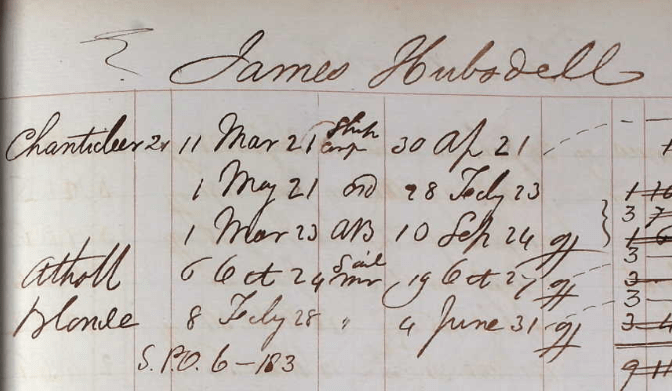 James Hubsdell
Chanticleer 2r 11 Mar 21 Ship carp 30 Ap 21
1 May 21 ord 28 Feby 23
1 Mar 23 AB 10 Sep 24 3
Atholl 6 Oct 24 Sail Mr 19 Oct 27 3
Blonde 8 Feby 28 " 4 June 31 3
S.P.O. 6-183